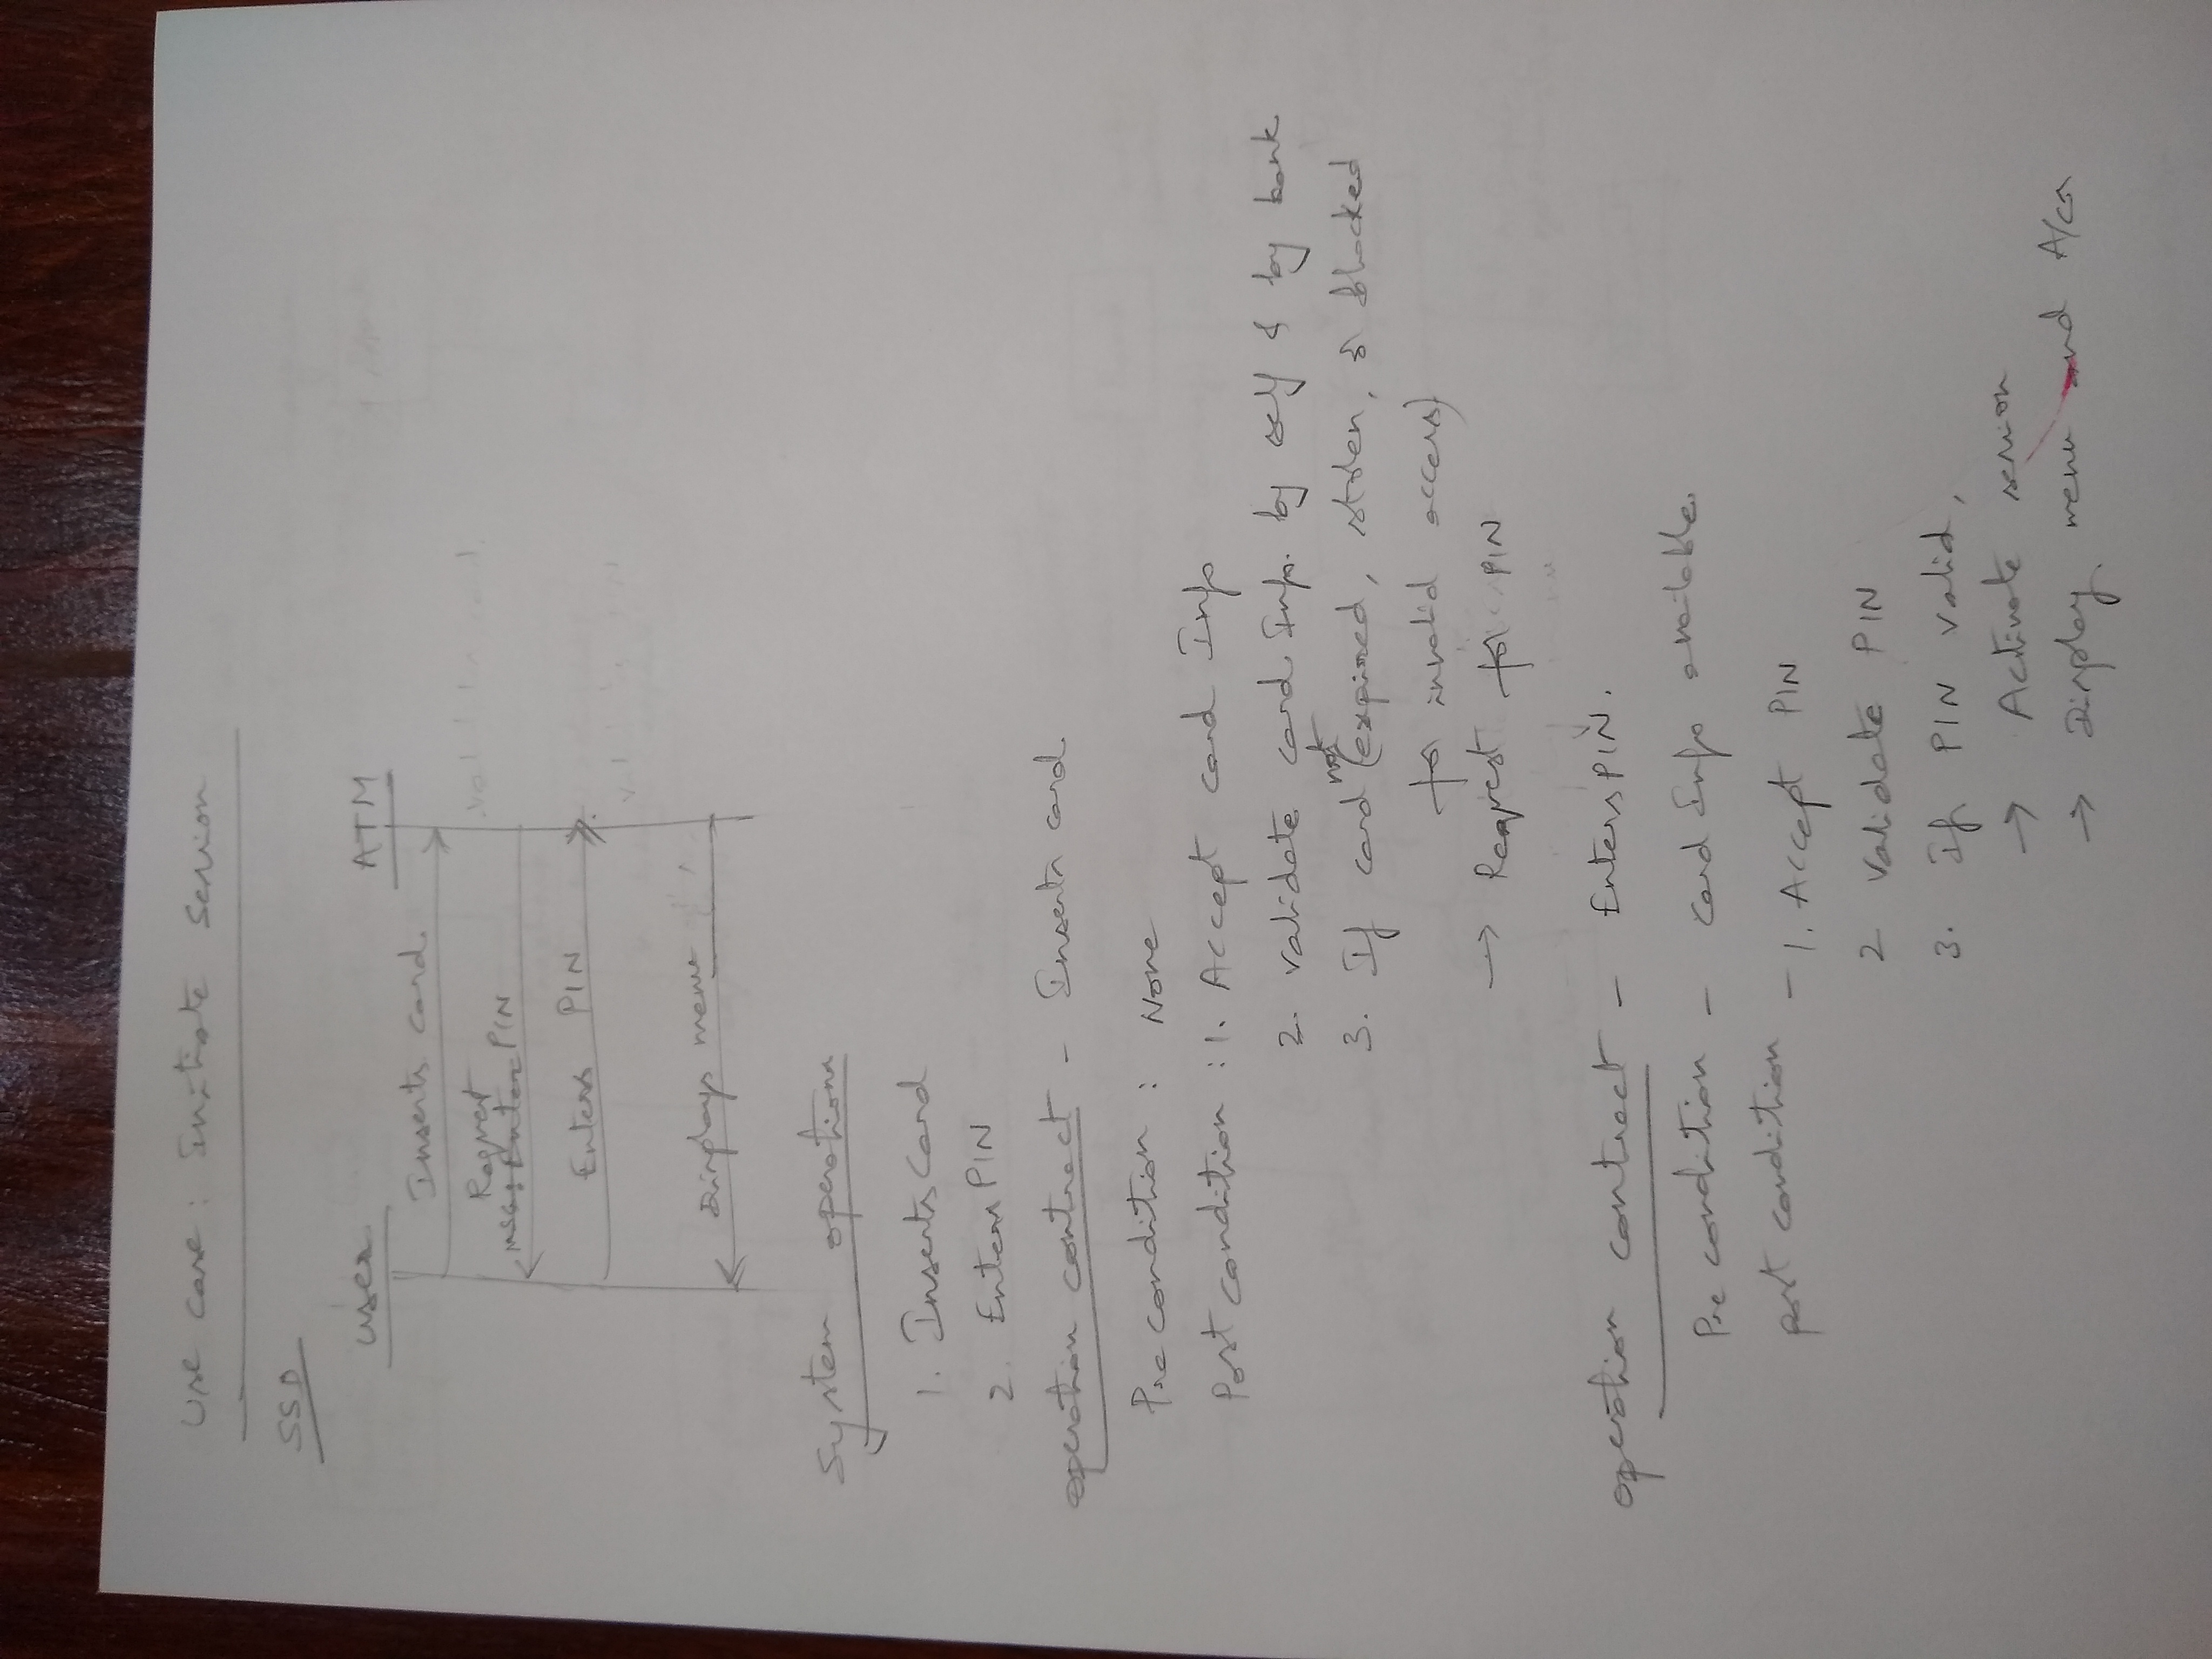 Use case: Initiate Session
SSD
user ATM
Inserts card.
Request
MSG: Enter PIN
Enters PIN
Displays menu
System operations
1. InsertsCard
2. EntersPIN
operation contract - Inserts card
Pre condition : None
Post condition : 1. Accept card Info
2. validate card Info. by self & by bank
not
3. If card (expired, stolen, or blocked
for invalid access)
→ Request for PIN
operation contract - EntersPIN.
Pre condition - card Info available
post condition - 1. Accept PIN
2 Validate PIN
3. If PIN valid,
→ Activate session
→ Display menu and A/cs